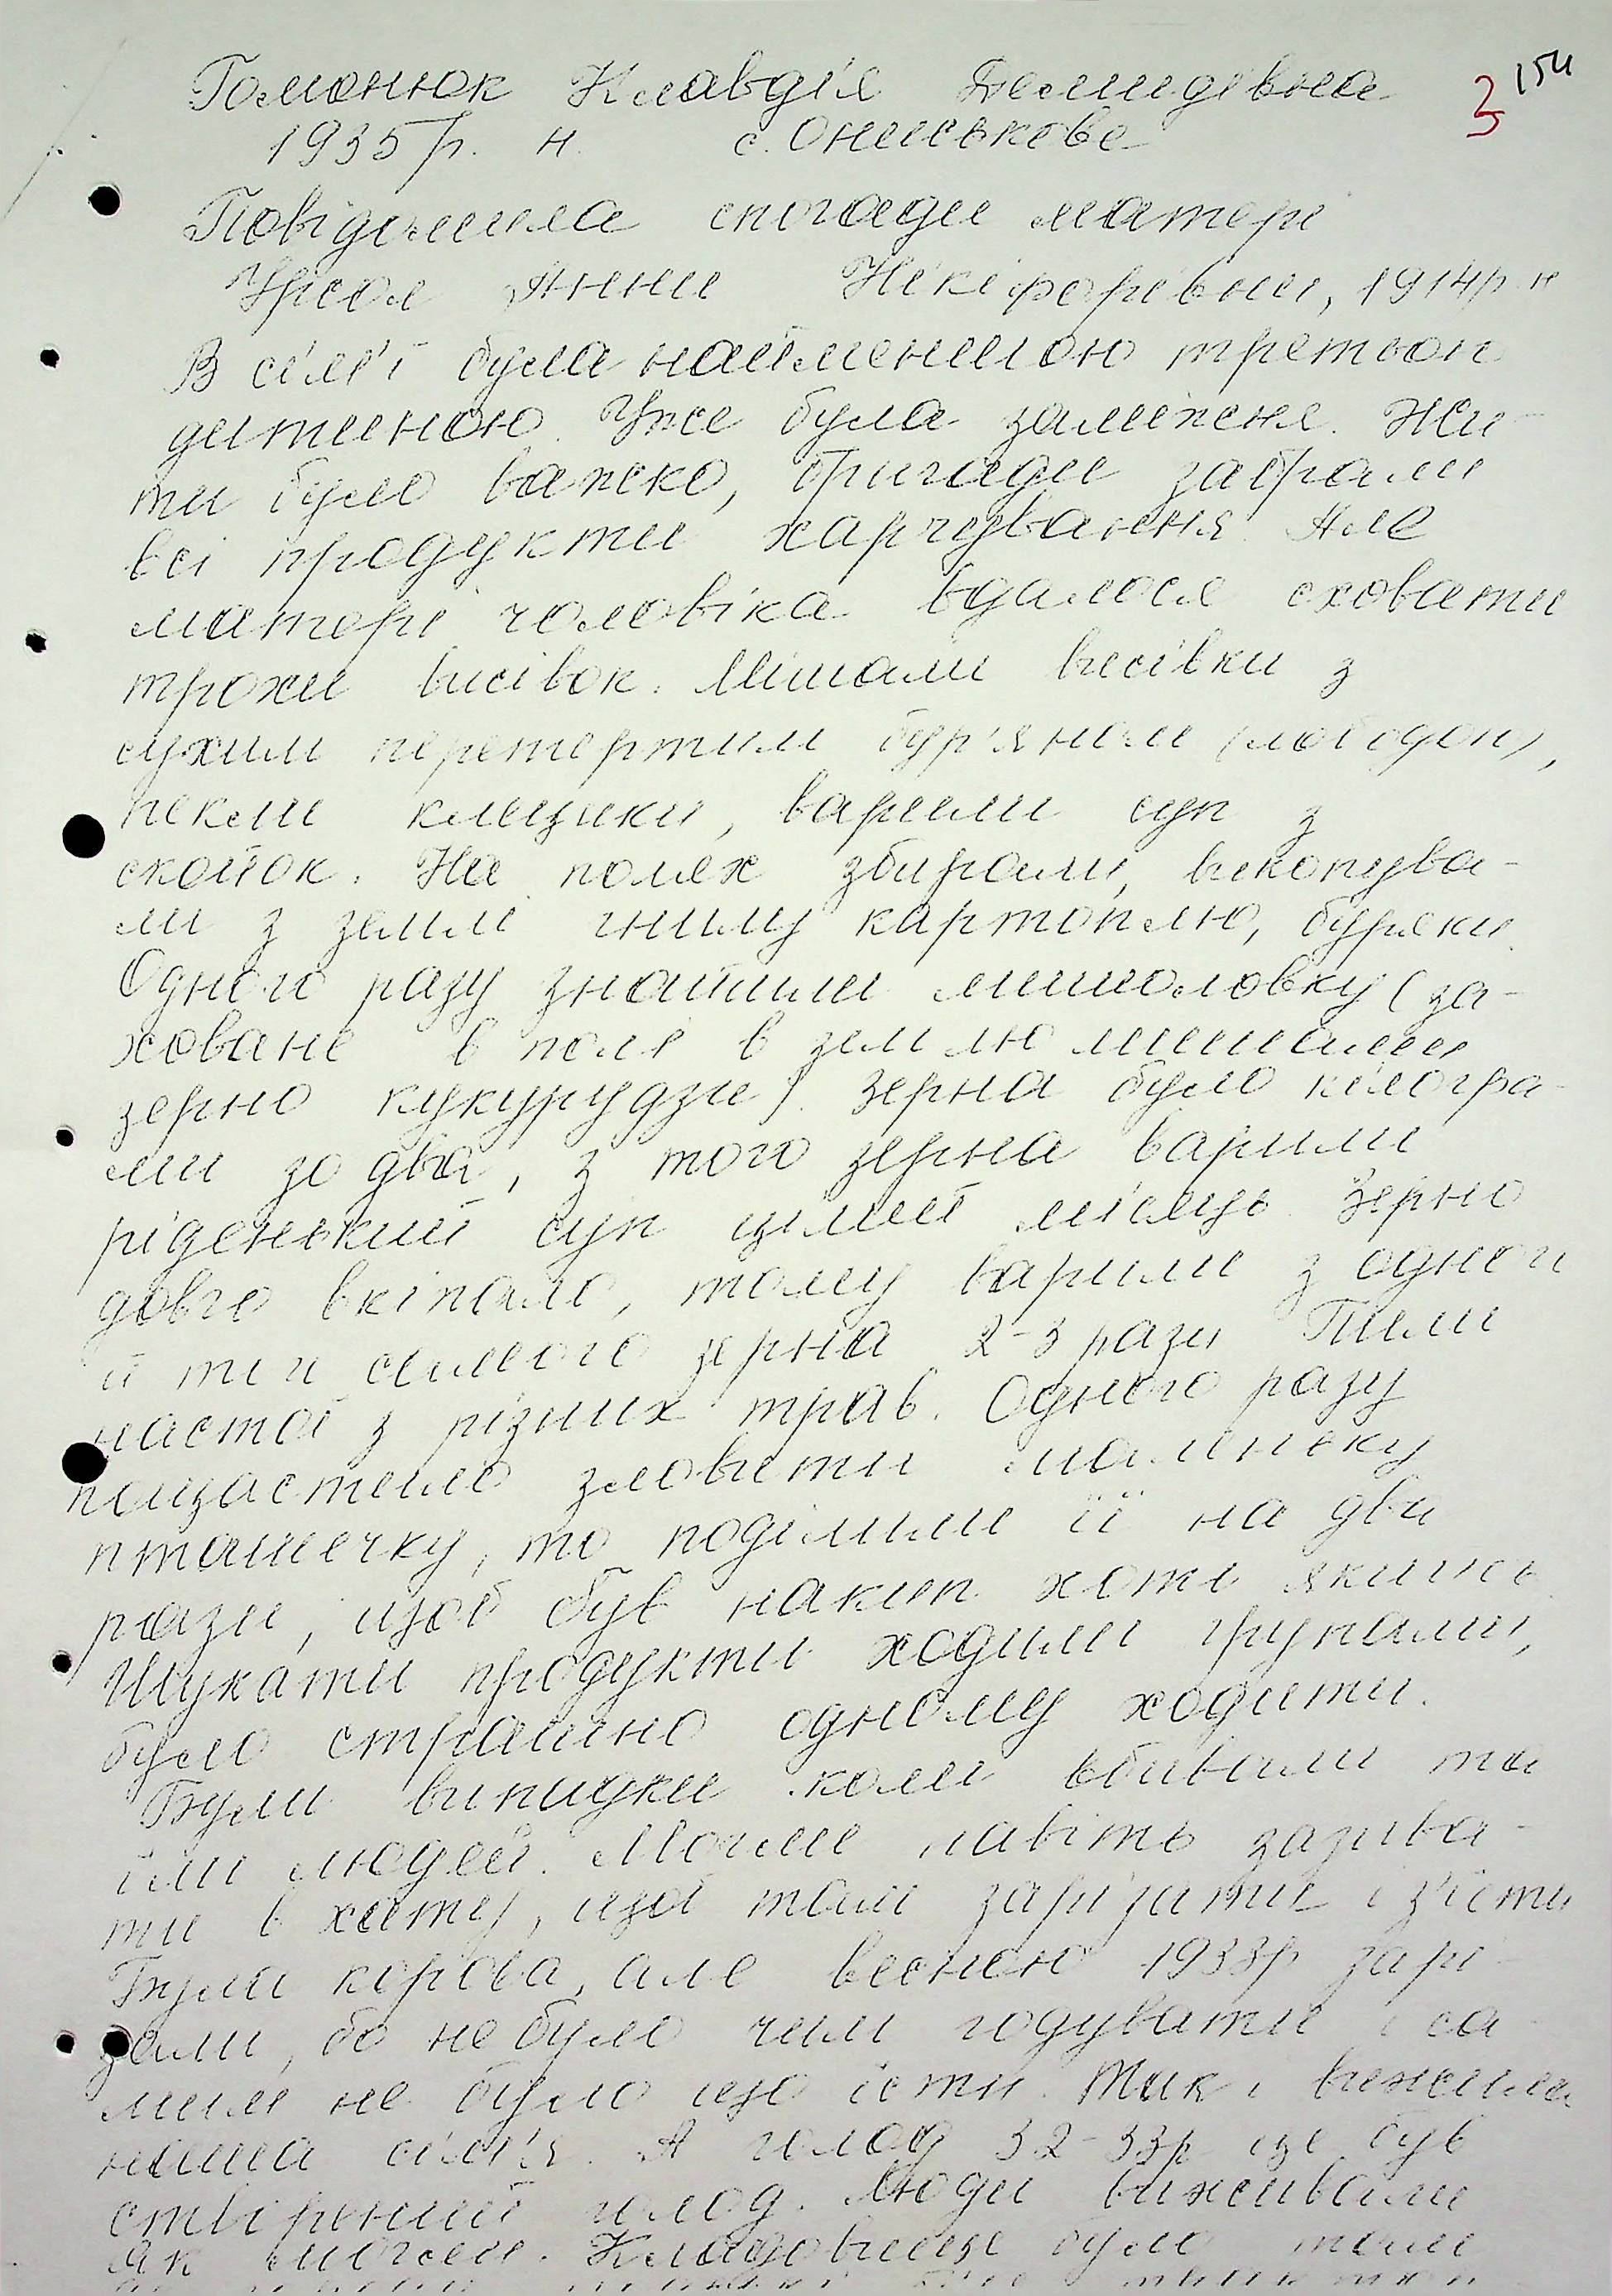 Гоманюк Клавдія Демидівна
3 154
1935 р. н. с. Ониськове
Повідомила спогади матері
Урсол Янини Нікіфорівни, 1914 р. н
В сім'ї була найменшою третьою
дитиною. Уже була заміжня. Жи-
ти було важко, бригади забрали
всі продукти харчування. Але
матері чоловіка вдалося сховати
трохи висівок. Мішали висівки з
сухим перетертим бур'яном (лободою),
пекли клецики, варили суп з
скойок. На полях збирали, викопува-
ли з землі гнилу картоплю, буряки.
Одного разу знайшли мишоловку (за-
ховане в полі в землю мишами
зерно кукурудзи). Зерна було кілогра-
ми зо два, з того зерна варили
ріденький суп цілий місяць. Зерно
довго вкіпало, тому варили з одного
й того самого зерна 2-3 рази. Пили
настої з різних трав. Одного разу
пощастило зловити маленьку
пташечку, то поділили її на два
рази, щоб був накип хоть якийсь.
Шукати продукти ходили групами,
було страшно одному ходити.
Були випадки коли вбивали та
їли людей. Могли навіть зазива-
ти в хату, щоб там зарізати і з'їсти
Були корова, але весною 1933р зарі-
зали, бо не було чим годувати і са-
мим не було що їсти. Так і вижила
наша сім'я. А голод 32-33р це був
створений голод. Люди виживали
як могли. Кладовище було там